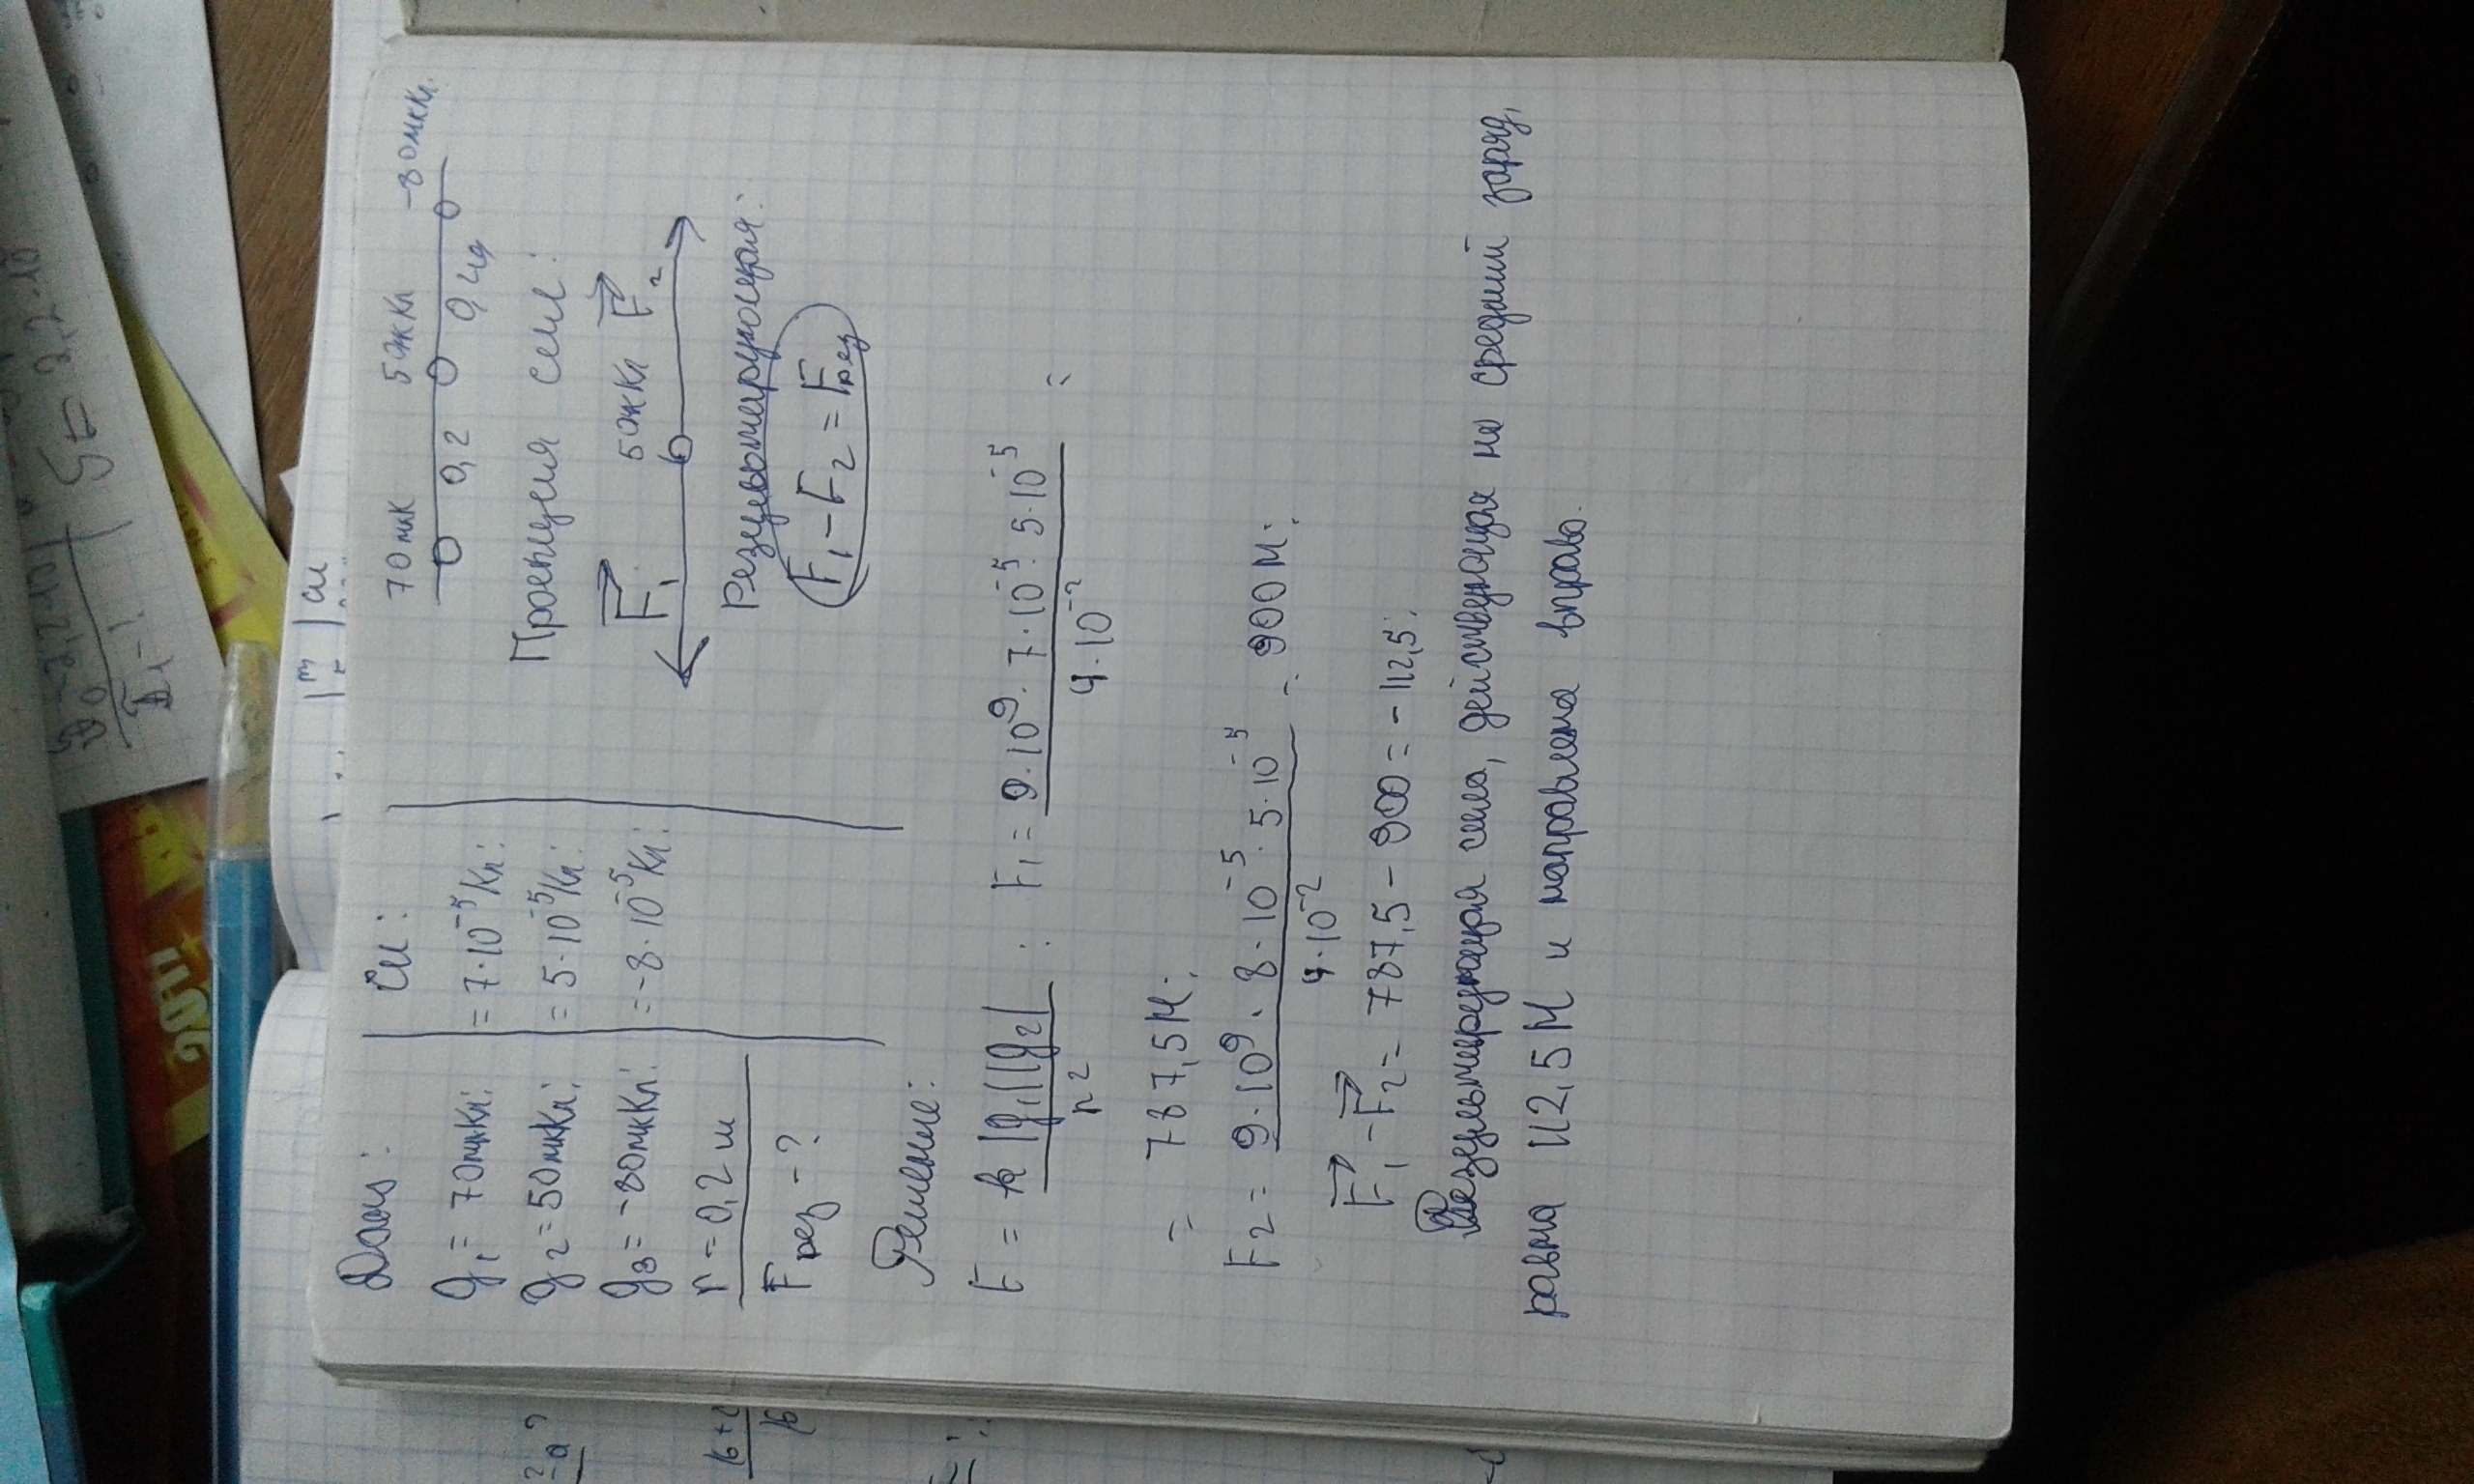 Дано:
q₁ = 70мкКл;
q₂ = 50мкКл;
q₃ = -80мкКл;
r = 0,2 м
Fрез - ?
Си:
= 7·10⁻⁵Кл;
= 5·10⁻⁵Кл;
= -8·10⁻⁵Кл;
70мк 50мкКл -80мкКл
0,2 0,2
Проекция сил:
F₁ 50мкКл F₂
Результирующая:
F₁ - F₂ = Fрез
Решение:
F = k |q₁||q₂| / r² ; F₁ = 9·10⁹·7·10⁻⁵·5·10⁻⁵ / 4·10⁻² =
= 787,5Н;
F₂ = 9·10⁹·8·10⁻⁵·5·10⁻⁵ / 4·10⁻² = 900Н;
F₁ - F₂ = 787,5 - 900 = -112,5;
Результирующая сила, действующая на средний заряд,
равна 112,5 Н и направлена вправо.
2011
St = 2,2·10